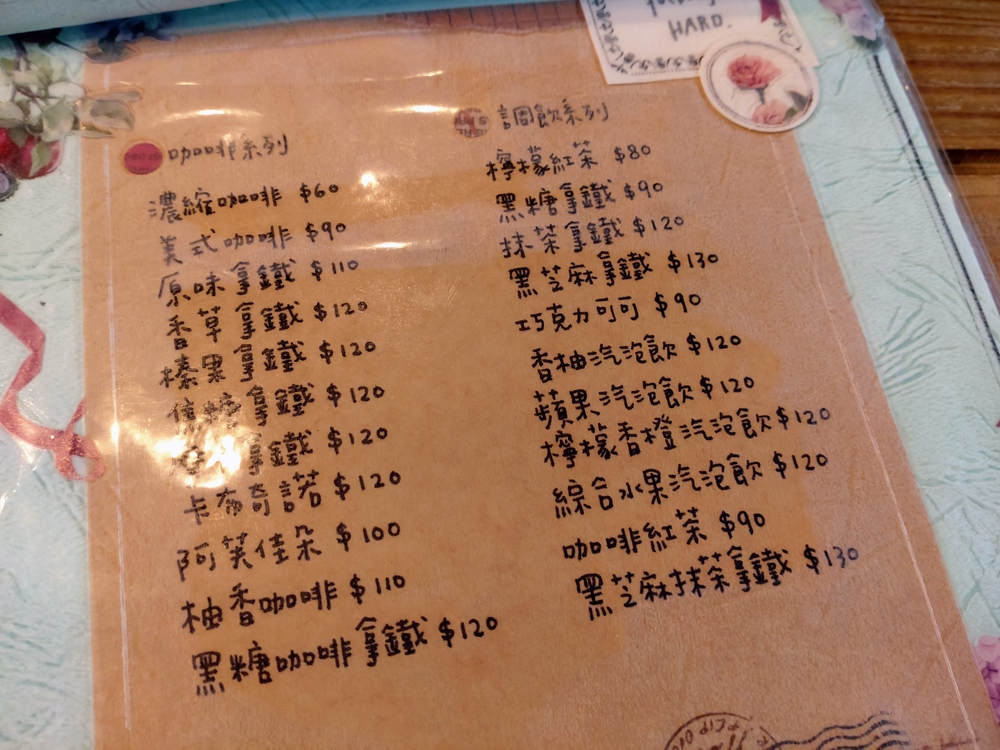 HARD.
咖啡系列
濃縮咖啡 $60
美式咖啡 $90
原味拿鐵 $110
香草拿鐵 $120
榛果拿鐵 $120
焦糖拿鐵 $120
拿鐵 $120
卡布奇諾 $120
阿芙佳朵 $100
柚香咖啡 $110
黑糖咖啡拿鐵 $120
調飲系列
檸檬紅茶 $80
黑糖拿鐵 $90
抹茶拿鐵 $120
黑芝麻拿鐵 $130
巧克力可可 $90
香柚汽泡飲 $120
蘋果汽泡飲 $120
檸檬香橙汽泡飲 $120
綜合水果汽泡飲 $120
咖啡紅茶 $90
黑芝麻抹茶拿鐵 $130